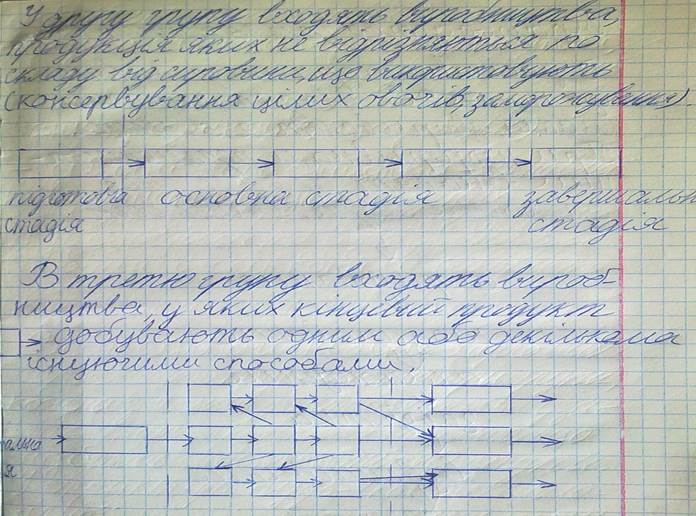 У другу групу входять виробництва,
продукція яких не відрізняється по
складу від сировини, що використовують
(консервування цілих овочів, заморожування)
підготовча основна стадія завершальн
стадія стадія
В третю групу входять вироб-
ництва, у яких кінцевий продукт
добувають одним або декількома
існуючими способами.
я